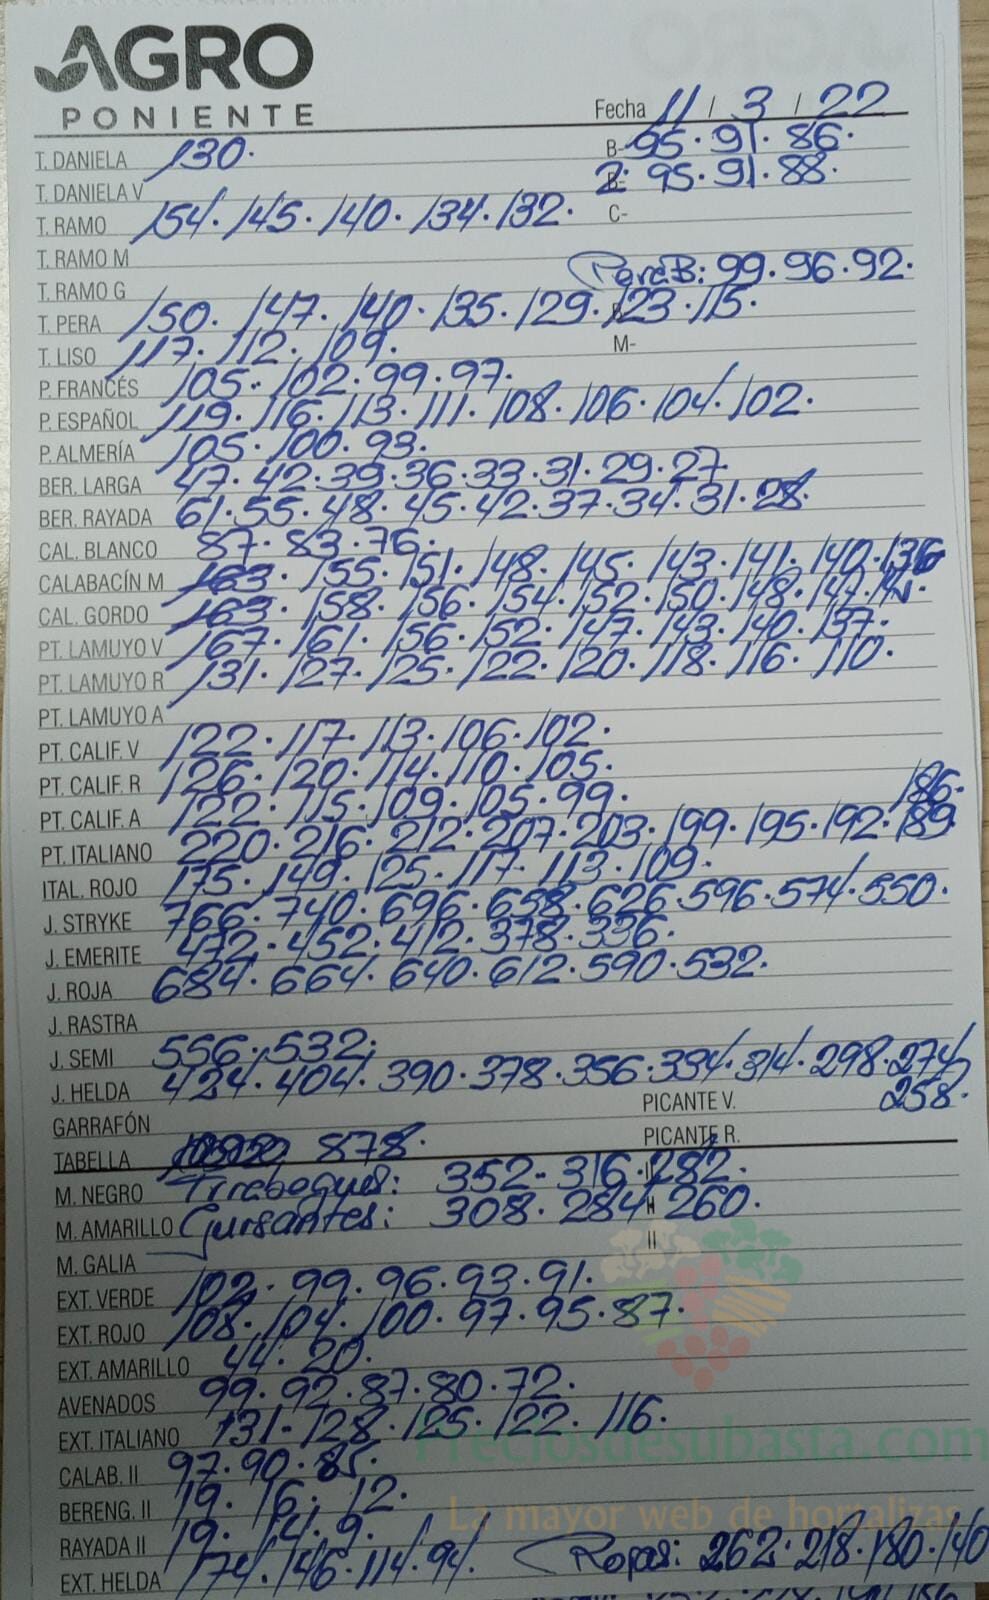 AGRO
PONIENTE
Fecha 11 / 3 / 22
B- 95. 91. 86.
T. DANIELA 130.
2: 95. 91. 88.
T. DANIELA V
T. RAMO 154. 145. 140. 134. 132. C-
T. RAMO M
Pera B: 99. 96. 92.
T. RAMO G
T. PERA 150. 147. 140. 135. 129. 123. 115.
T. LISO 117. 112. 109. M-
P. FRANCÉS 105. 102. 99. 97.
P. ESPAÑOL 119. 116. 113. 111. 108. 106. 104. 102.
P. ALMERÍA 105. 100. 93.
BER. LARGA 47. 42. 39. 36. 33. 31. 29. 27.
BER. RAYADA 61. 55. 48. 45. 42. 37. 34. 31. 28.
CAL. BLANCO 87. 83. 76.
CALABACÍN M 163. 155. 151. 148. 145. 143. 141. 140. 136
CAL. GORDO 163. 158. 156. 154. 152. 150. 148. 147.
PT. LAMUYO V 167. 161. 156. 152. 147. 143. 140. 137.
PT. LAMUYO R 131. 127. 125. 122. 120. 118. 116. 110.
PT. LAMUYO A
PT. CALIF. V 122. 117. 113. 106. 102.
PT. CALIF. R 126. 120. 114. 110. 105.
PT. CALIF. A 122. 115. 109. 105. 99. 186.
PT. ITALIANO 220. 216. 212. 207. 203. 199. 195. 192. 189
ITAL. ROJO 175. 149. 125. 117. 113. 109.
J. STRYKE 766. 740. 696. 658. 626. 596. 574. 550.
J. EMERITE 472. 452. 412. 378. 336.
J. ROJA 684. 664. 640. 612. 590. 532.
J. RASTRA
J. SEMI 556. 532.
J. HELDA 424. 404. 390. 378. 356. 334. 314. 298. 274
PICANTE V. 258.
GARRAFÓN
PICANTE R.
TABELLA 878.
M. NEGRO Tirabeques: 352. 316. 282.
M. AMARILLO Guisantes: 308. 284. 260.
M. GALIA II
EXT. VERDE 102. 99. 96. 93. 91.
EXT. ROJO 108. 104. 100. 97. 95. 87.
EXT. AMARILLO 44. 20.
AVENADOS 99. 92. 87. 80. 72.
EXT. ITALIANO 131. 128. 125. 122. 116.
Preciosdesubasta.com
CALAB. II 97. 90. 85.
BERENG. II 19. 16. 12.
La mayor web de hortalizas
RAYADA II 19. 14. 9.
EXT. HELDA 174. 146. 114. 94. Rojas: 262. 218. 180. 140